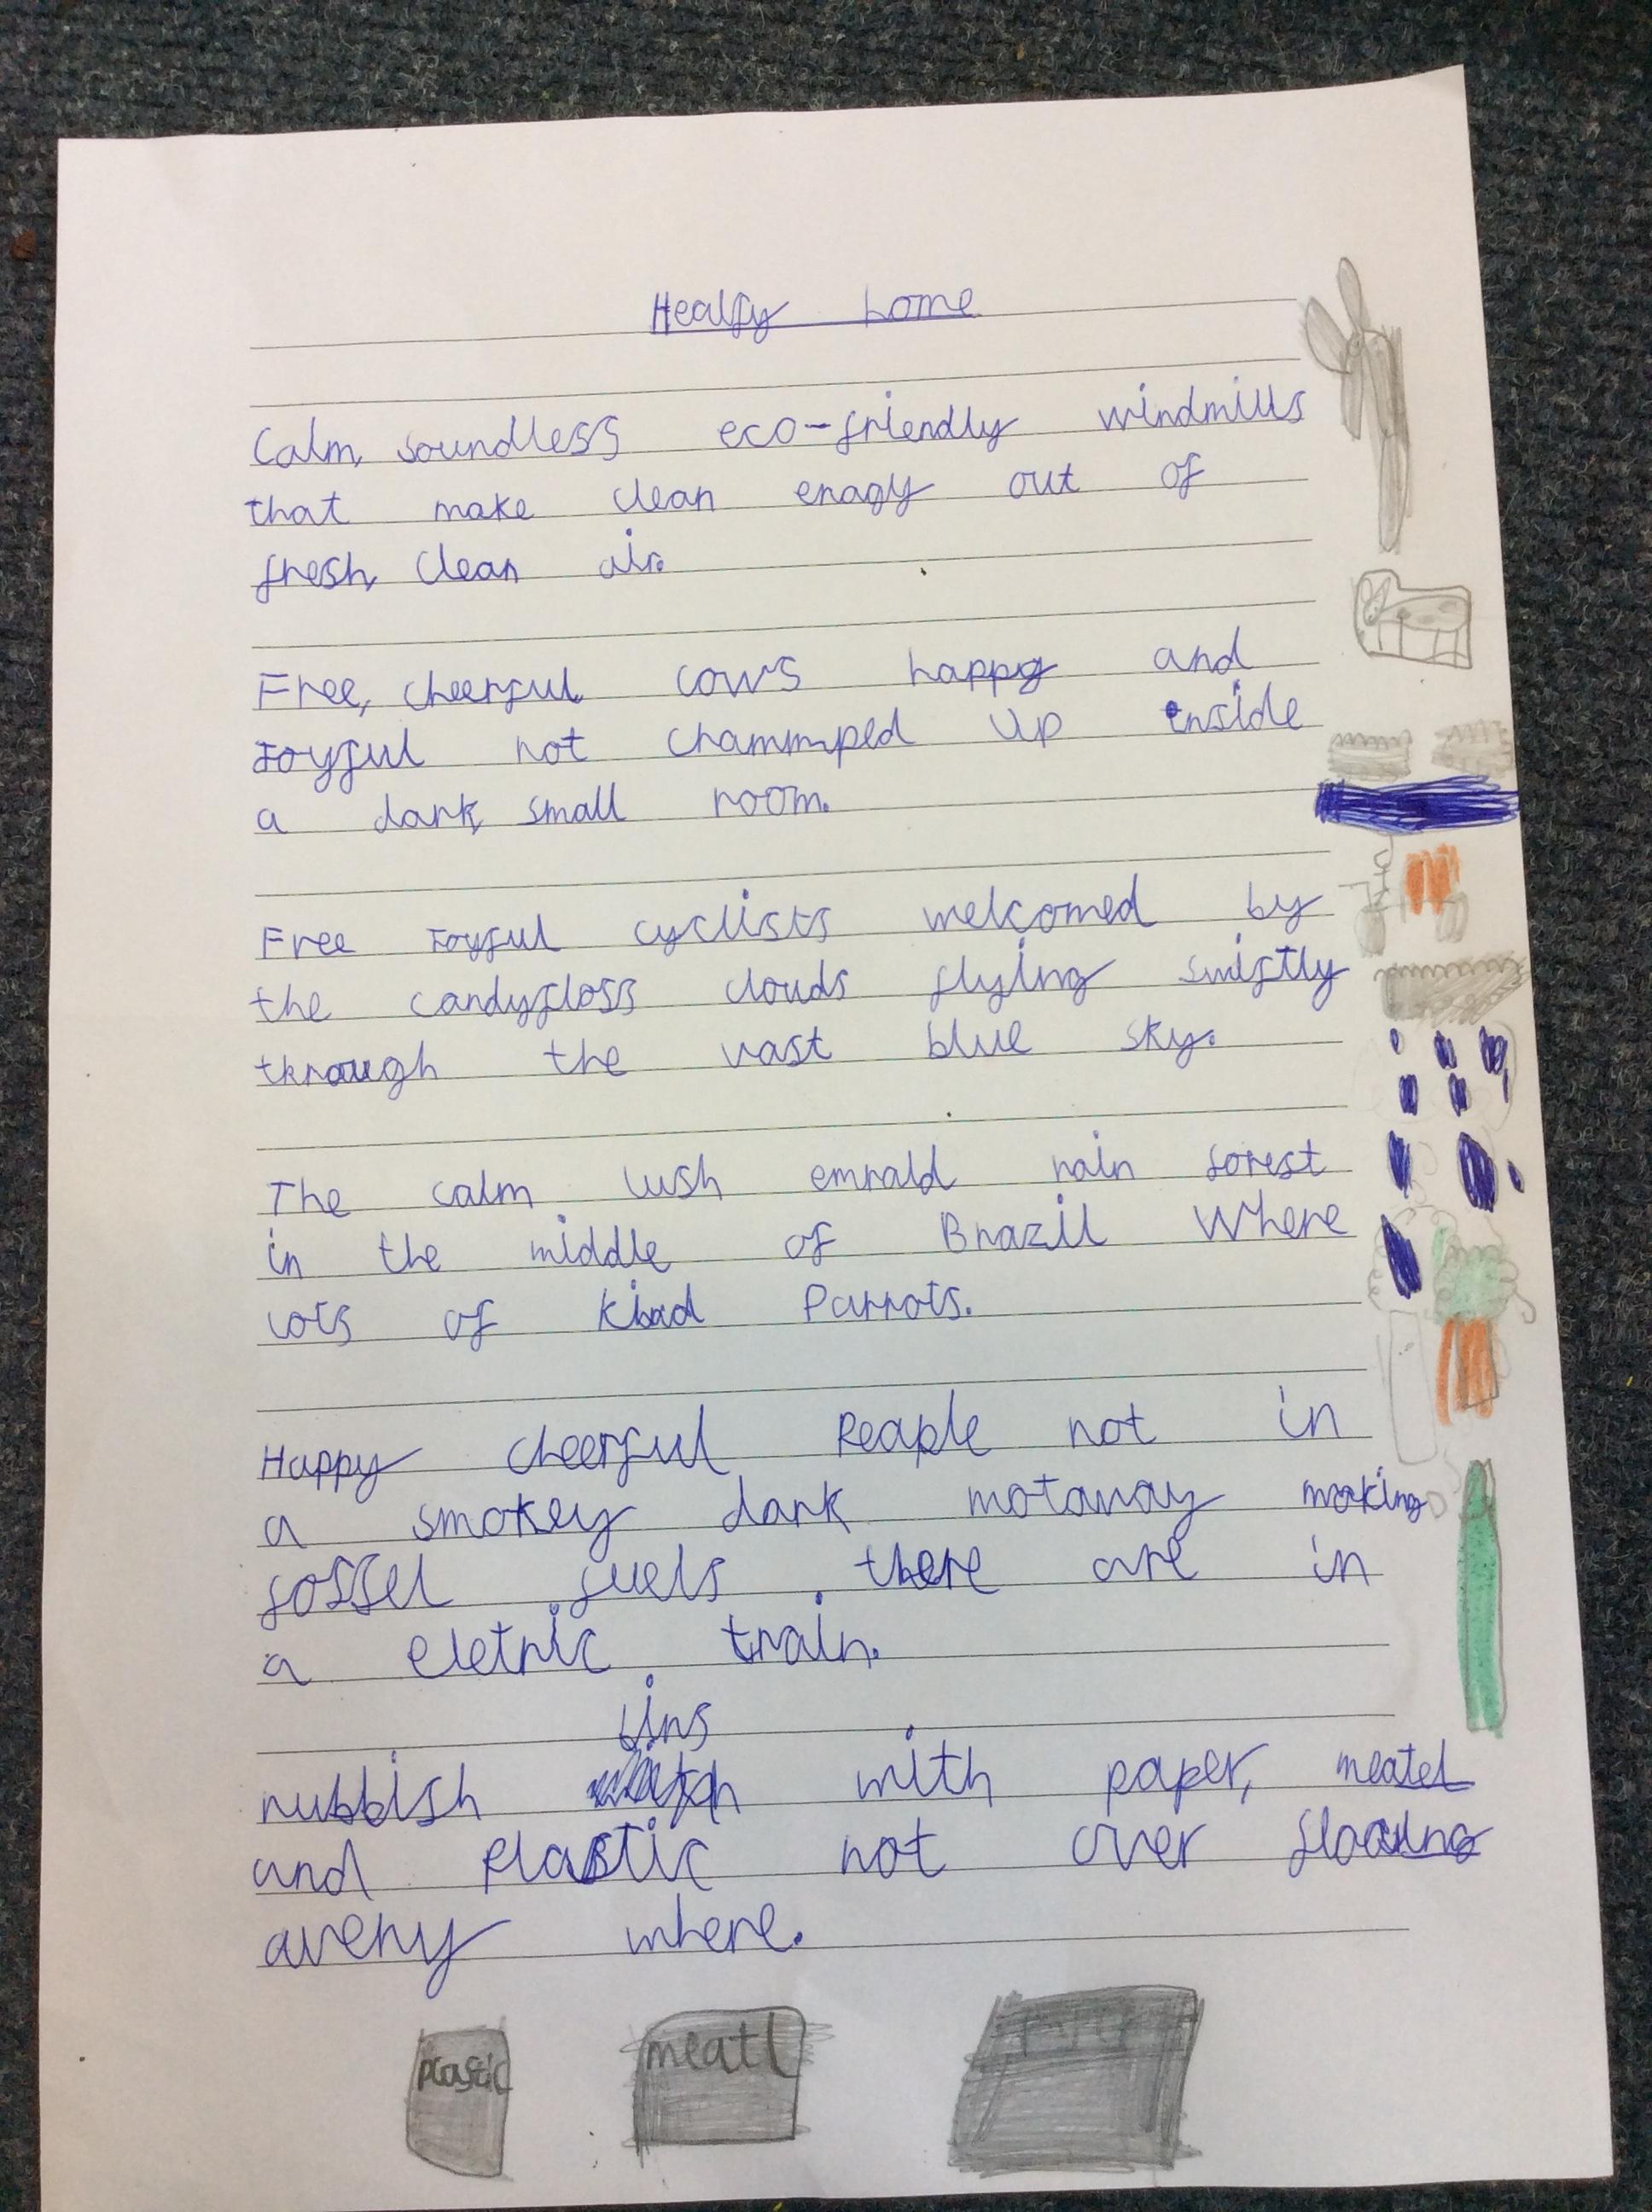 Healfy home
Calm, soundless eco-friendly windmills
that make clean enagy out of
fresh, clean air.
Free, cheerful cows happy and
Joyful not chammped up inside
a dark, small room.
Free Joyful cyclists welcomed by
the candyfloss clouds flying swiftly
through the vast blue sky.
The calm lush emrald rain forest
in the middle of Brazil Where
lots of Parrots.
Happy cheerful Peaple not in
a smokey dark motaway making
fossel fuels there are in
a eletric train.
bins
rubbish with paper, meatel
and Plastic not over
avery where.
plastic
meatl